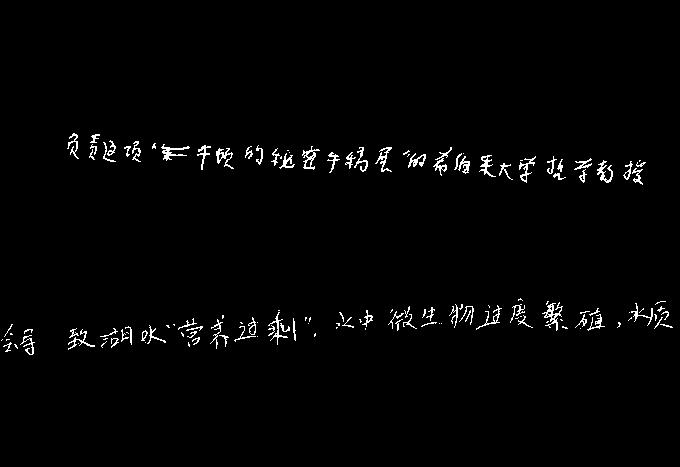 负责这项“牛顿的秘密手稿展”的希伯来大学哲学教授
会导致湖水“营养过剩”，水中微生物过度繁殖，水质